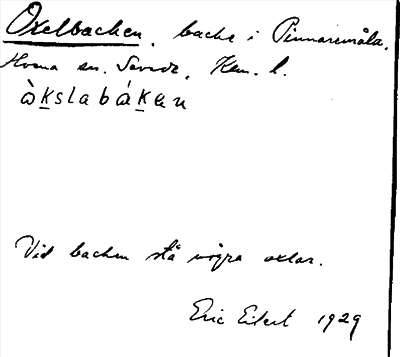 Oxelbacken, backe i Pinnaremåla,
Hvena sn. Sevede, Kem. l.
àk̲slabák̲en
Vid backen stå några oxlar.
Eric Eilert 1929